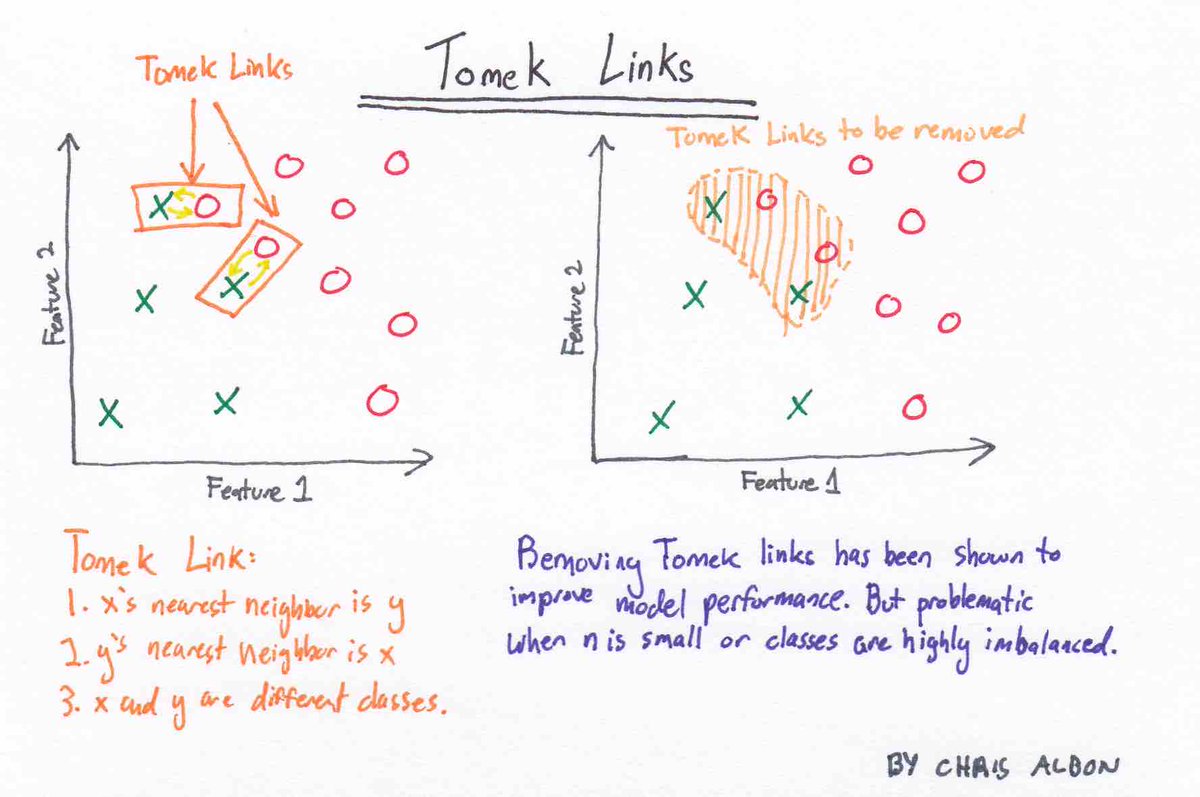 Tomek Links
Tomek Links
Feature 2
Feature 1
Tomek Links to be removed
Feature 2
Feature 1
Tomek Link:
1. x's nearest neighbor is y
2. y's nearest neighbor is x
3. x and y are different classes.
Removing Tomek links has been shown to
improve model performance. But problematic
when n is small or classes are highly imbalanced.
BY CHRIS ALBON